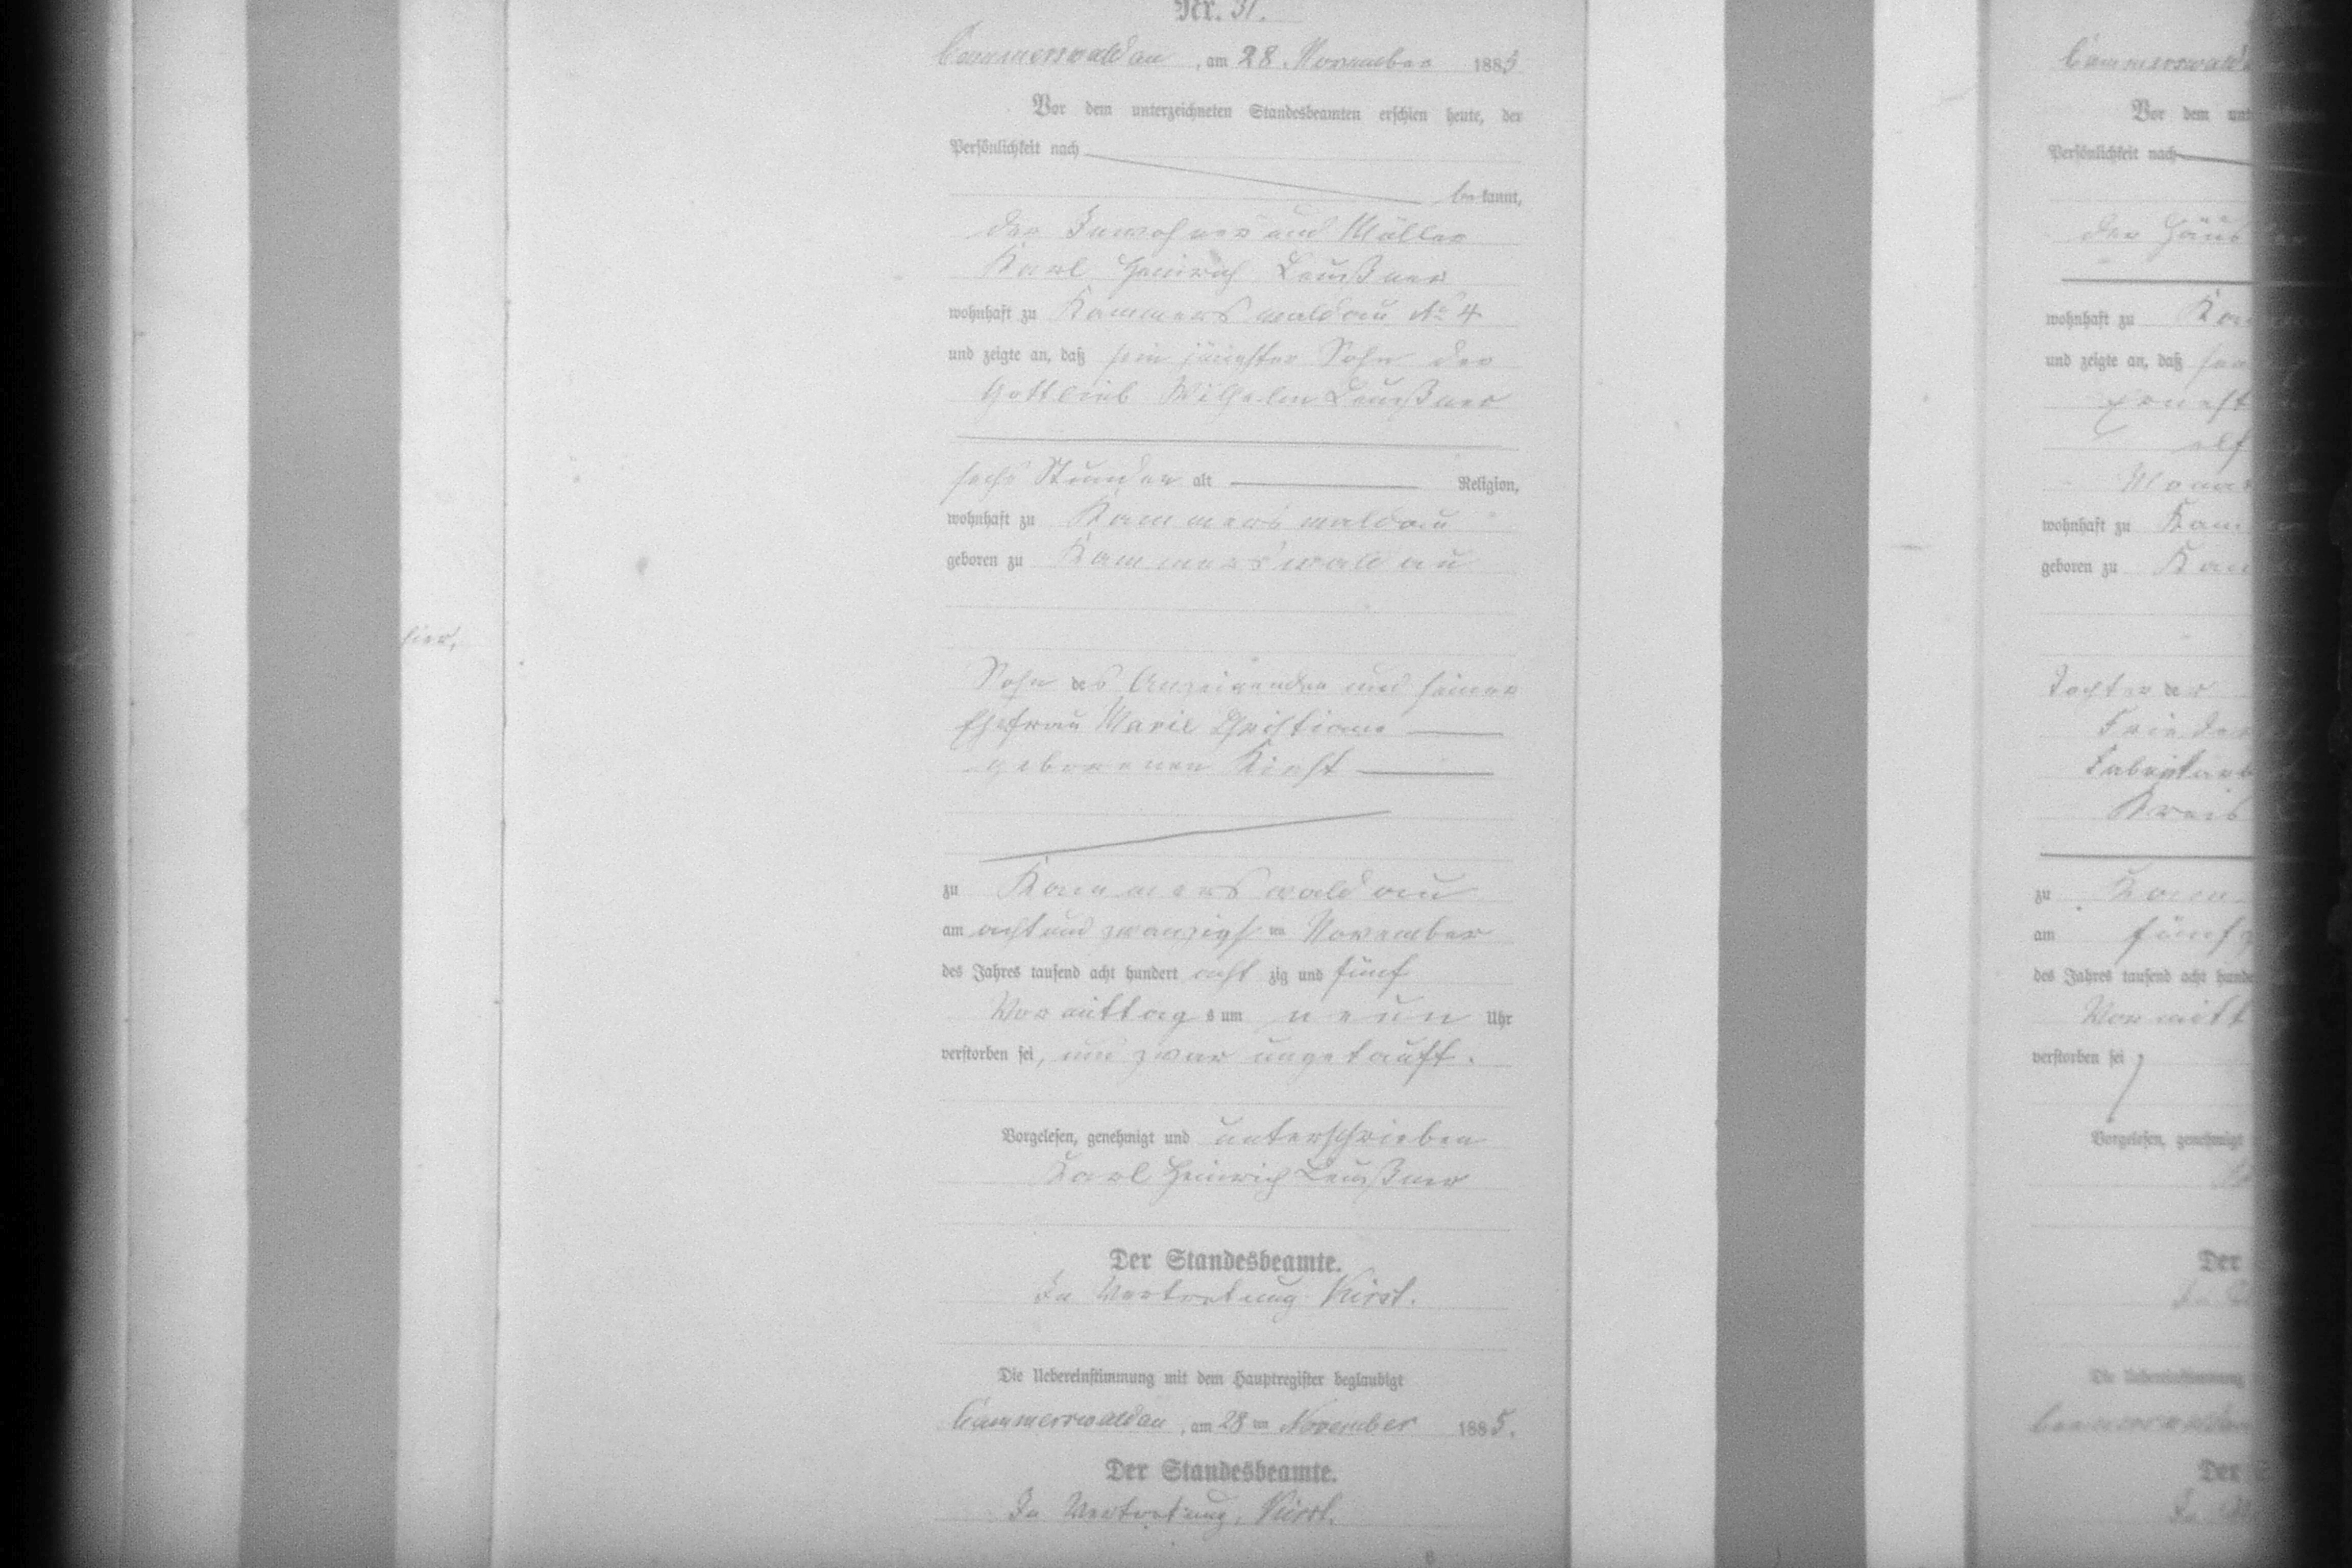 Nr. 31.
Cammerswaldau, am 28. November 1885
Vor dem unterzeichneten Standesbeamten erschien heute, der
Persönlichkeit nach
bekannt,
der Inwohner und Müller
Karl Heinrich Leußner
wohnhaft zu Kammerswaldau No 4
und zeigte an, daß sein jüngster Sohn der
Gottlieb Wilhelm Leußner
sechs Stunden alt Religion,
wohnhaft zu Kammerswaldau
geboren zu Kammerswaldau
Sohn des Anzeigenden und seiner
Ehefrau Marie Christiane
geborenen
zu Kammerswaldau
am acht und zwanzigsten November
des Jahres tausend acht hundert acht zig und fünf
Vormittags um neun Uhr
verstorben sei, und zwar ungetauft.
Vorgelesen, genehmigt und unterschrieben
Karl Heinrich Leußner
Der Standesbeamte.
In Vertretung Kirst.
Die Uebereinstimmung mit dem Hauptregister beglaubigt
Cammerswaldau, am 28ten November 1885.
Der Standesbeamte.
In Vertretung. Kirst.
8
hier,
Cammerswald
Vor dem unt
Persönlichkeit nach
der Häus
wohnhaft zu
und zeigte an, daß
Ernest
elf
Mona
wohnhaft zu Kam
geboren zu Kam
Tochter der
Friede
Fabrikarb
Kreis
zu Kam
am fünf
des Jahres tausend acht hunde
Vormitt
verstorben sei
Vorgelesen, genehmigt
Der
Die Uebereinstimmung
Der